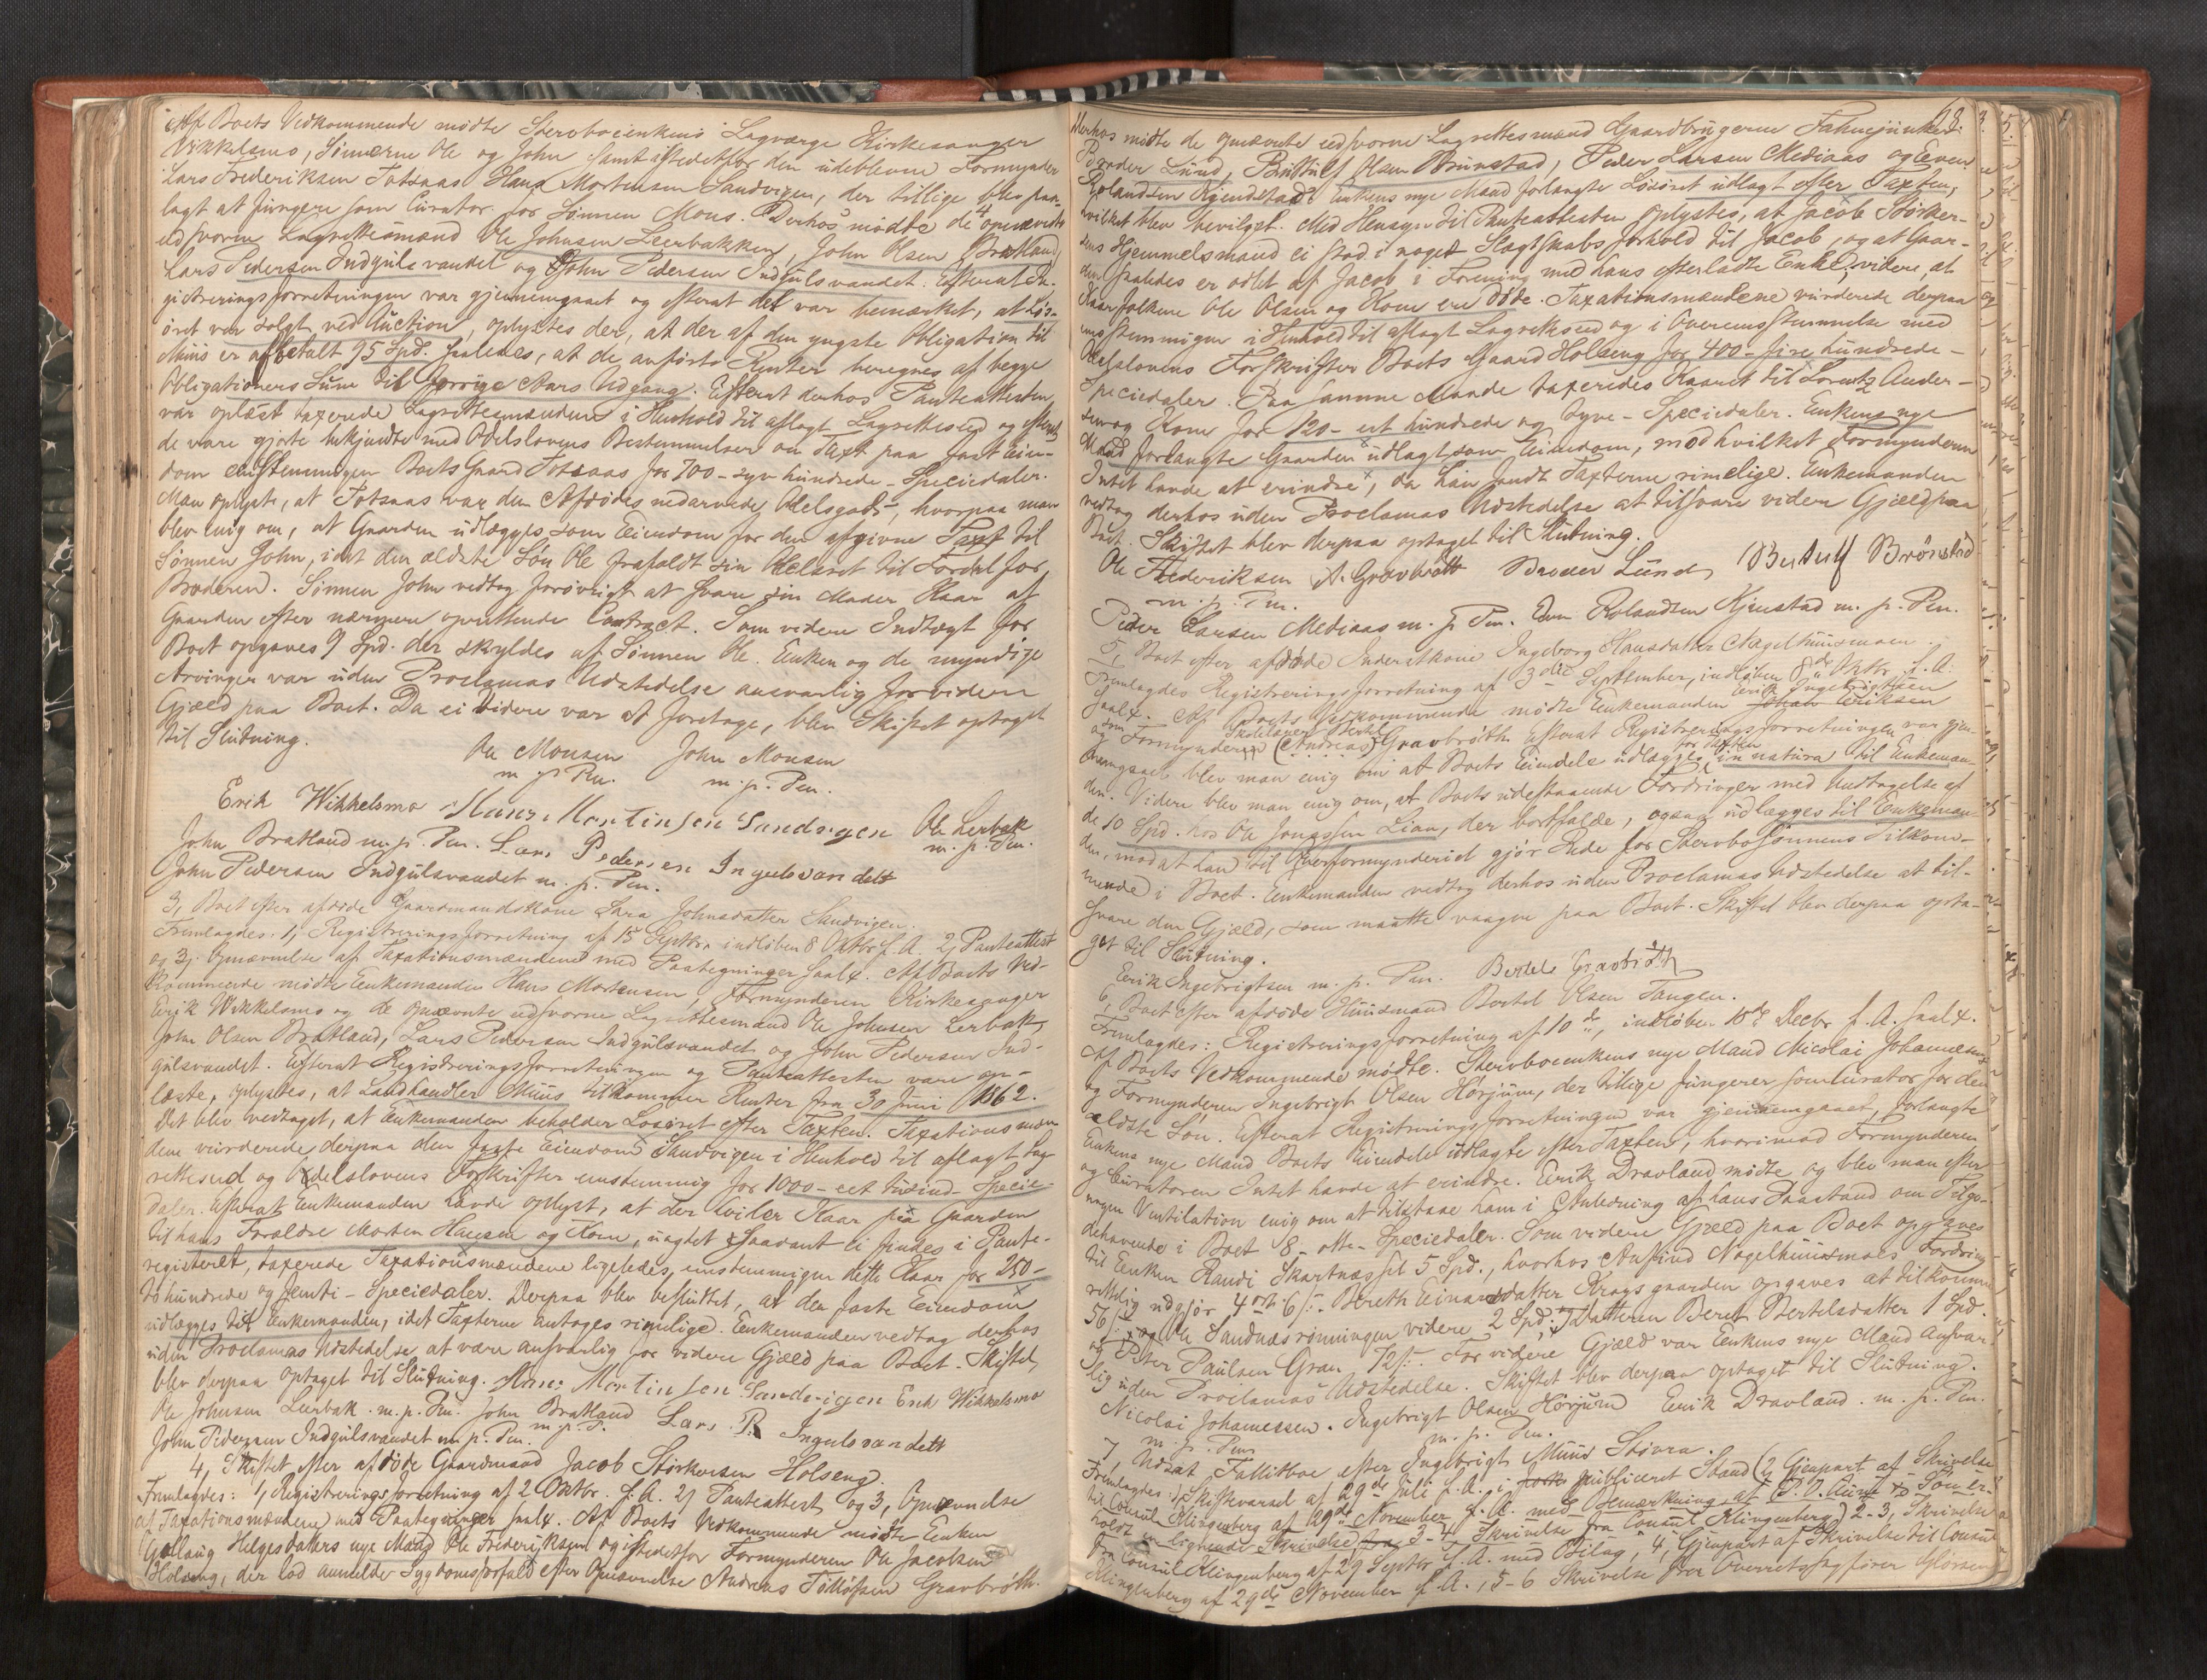 Af Boets Vedkommende mødte Sterboeenkens Laugværge Kirkesanger
Wikkelsmo, Sønnerne Ole og John samt istedetfor den udeblevne Formynder
Lars Frederiksen Totsaas Hans Mortensen Sandvigen, der tillige blev paa-
lagt at fungere som Curator for Sønnen Mons. Derhos mødte de 4 opnævnte
edsvorne Lagrettesmænd Ole Johnsen Leerbakken, John Olsen Bratland,
Lars Pedersen Indgulsvandet og John Pedersen Indgulsvandet. Efterat Re-
gistreringsforretningen var gjennemgaaet og efterat det var bemærket, at Løs-
øret var solgt ved Auction, oplystes der, at der af den yngste Obligation til
Muus er afbetalt 95 Spd. saaledes, at de anførte Renter beregnes af begge
Obligationers Sum til forrige Aars Udgang. Efterat derhos Panteattesten
var oplæst taxerede Lagrettesmændene i Henhold til aflagt Lagrettesed og efterat
de vare gjorte bekjendte med Odelslovens Bestemmelser om Taxt paa fast Eien-
dom eenstemmigen Boets Gaard Totsaas for 700 - syv hundrede - Speciedaler.
Man oplyste, at Totsaas var den Afdødes nedarvede Odelsgods, hvorpaa man
blev enig om, at Gaarden udlægges som Eiendom for den afgivne Taxt til
Sønnen John, idet den ældste Søn Ole frafaldt sin Odelsret til Fordel for
Broderen. Sønnen John vedtog forøvrigt at svare sin Moder Kaar af
Gaarden efter nærmere oprettende Contract. Som videre Indtægt for
Boet opgaves 9 Spd. der skyldes af Sønnen Ole. Enken og de myndige
Arvinger var uden Proclamas Udstedelse ansvarlig for videre
Gjæld paa Boet. Da ei videre var at foretage, blev Skiftet optaget
til Slutning.
Ole Monsen John Monsen
m. p. Pen. m. p. Pen.
Erik Wikkelsmo Hans Mortinsen Sandvigen Ole Lerbak
m. p. Pen.
John Bratland m. p. Pen. Lars Pedersen Ingulsvandett
John Pedersen Indgulsvandet m. p. Pen.
3, Boet efter afdøde Gaardmandskone Sara Johnsdatter Sandvigen.
Fremlagdes: 1, Registreringsforretning af 15 Septbr. indløben 8 Oktbr. f. A. 2, Panteattest
og 3, Opnævnelse af Taxationsmændene med Paategninger saal. Af Boets Ved-
kommende mødte Enkemanden Hans Mortensen, Formynderen Kirkesanger
Erik Wikkelsmo og de opnævnte edsvorne Lagrettesmænd Ole Johnsen Lerbak,
John Olsen Bratland, Lars Pedersen Indgulsvandet og John Pedersen Ind-
gulsvandet. Efterat Registreringsforretningen og Panteattesten vare op-
læste, oplystes, at Landhandler Muus tilkommer Renter fra 30 Juni 1862.
Det blev vedtaget, at Enkemanden beholder Løsøret efter Taxten. Taxationsmæn-
dene vurderede derpaa den faste Eiendom Sandvigen i Henhold til aflagt Lag-
rettesed og Odelslovens Forskrifter eenstemmig for 1000 - eet tusind - Specie-
daler. Efterat Enkemanden havde oplyst, at der hviler Kaar paa Gaarden
til hans Forældre Morten Hansen og Kone, uagtet saadant ei findes i Pante-
registeret, taxerede Taxationsmændene ligeledes eenstemmigen dette Kaar for 250 -
to hundrede og femti - Speciedaler. Derpaa blev besluttet, at den faste Eiendom
udlægges til Enkemanden, idet Taxterne antoges rimelige. Enkemanden vedtog derhos
uden Proclamas Udstedelse at være ansvarlig for videre Gjæld paa Boet. Skiftet
blev derpaa optaget til Slutning. Hans Mortinsen Sandvigen Erik Wikkelsmo
Ole Johnsen Leerbak m. p. Pen. John Bratland Lars P. Ingulsvandett
m. p. P.
John Pedersen Indgulsvandet m. p. Pen.
4, Skiftet efter afdøde Gaardmand Jacob Størkersen Holseng.
Fremlagdes: 1, Registreringsforretning af 2 Oktbr. f. A. 2, Panteattest, og 3, Opnævnelse
af Taxationsmændene med Paategninger saal. Af Boets Vedkommende mødte Enken
Gollaug Helgesdatters nye Mand Ole Frederiksen og istedetfor Formynderen Ole Jacobsen
Holseng, der lod anmelde Sygdomsforfald efter Opnævnelse Andreas Tollefsen Gravbrøth.
Derhos mødte de opnævnte edsvorne Lagrettesmænd Gaardbrugerne Fahnejunker
Broder Lund, Bertulf Olsen Brønstad, Peder Larsen Mediaas og Even
Rolandsen Kjenstad. Enkens nye Mand forlangte Løsøret udlagt efter Taxten,
hvilket blev bevilget. Med Hensyn til Panteattesten oplystes, at Jacob Størker-
sens Hjemmelsmand ei stod i noget Slægtskabsforhold til Jacob, og at Gaar-
den saaledes er odlet af Jacob i Forening med hans efterladte Enke; videre, at
Kaarfolkene Ole Olsen og Kone ere døde. Taxationsmændene vurderede derpaa
eenstemmigen i Henhold til aflagt Lagrettesed og i Overensstemmelse med
Odelslovens Forskrifter Boets Gaard Holseng for 400 - fire hundrede -
Speciedaler. Paa samme Maade taxeredes Kaaret til Lorentz Ander-
sen og Kone for 120 - eet hundrede og tyve - Speciedaler. Enkens nye
Mand forlangte Gaarden udlagt som Eiendom, mod hvilket Formynderen
Intet havde at erindre, da han fandt Taxterne rimelige. Enkemanden
vedtog derhos uden Proclamas Udstedelse at tilsvare videre Gjæld paa
Boet. Skiftet blev derpaa optaget til Slutning.
Ole Frederiksen A. Gravbrøtt Broder Lund Bertulf Brönstad
m. p. Pen.
Peder Larsen Mediaas m. p. Pen. Even Rolandsen Kjenstad m. p. Pen.
5, Boet efter afdøde Inderstkone Ingeborg Hansdatter Nagelhuusmoen.
Fremlagdes Registreringsforretning af 3die September, indløben 8de Oktbr. f. A.
Erik Ingebrigtsen
saal. Af Boets Vedkommende mødte Enkemanden Johan Eriksen
Skolelærer Bertel
og som Formynderen (Andreas) Gravbrøth. Efterat Registreringsforretningen var gjen-
for Taxten
nemgaaet blev man enig om at Boets Eiendele udlægges in natura til Enkeman-
den. Videre blev man enig om, at Boets udestaaende Fordringer med Undtagelse af
de 10 Spd. hos Ole Jonassen Lian, der bortfalde, ogsaa udlægges til Enkeman-
den, mod at han til Overformynderiet gjør Rede for Sterbosønnens Tilkom-
mende i Boet. Enkemanden vedtog derhos uden Proclamas Udstedelse at til-
svare den Gjæld, som maatte vaagne paa Boet. Skiftet blev derpaa opta-
get til Slutning.
Erik Ingebrigtsen m. p. Pen. Bertel Gravbröth
6, Boet efter afdøde Huusmand Bertel Olsen Tangen.
Fremlagdes: Registreringsforretning af 10de, indløben 18de Decbr. f. A. saal.
Af Boets Vedkommende mødte Sterboeenkens nye Mand Nicolai Johannesen
og Formynderen Ingebrigt Olsen Hørjum, der tillige fungerer som Curator for den
ældste Søn. Efterat Registreringsforretningen var gjennemgaaet, forlangte
Enkens nye Mand Boets Eiendele udlagte efter Taxten, hvorimod Formynderen
og Curatoren Intet havde at erindre. Erik Dravland mødte og blev man efter
nogen Ventilation enig om at tilstaae ham i Anledning af hans Paastand om Tilgo-
dehavende i Boet 8 - otte - Speciedaler. Som videre Gjæld paa Boet opgaves
til Enken Randi Skartnæs 5 Spd., hvorhos Anfind Nagelhuusmoes Fordring
rettelig udgjør 4 ort 6 s. Bereth Einarsdatter Kraggaarden opgaves at tilkomme
56 s. og Ole Sandnæsrønningen videre 2 Spd., Datteren Beret Bertelsdatter 1 Spd.
og Peter Paulsen Gran 72 s. For videre Gjæld var Enkens nye Mand ansvar-
lig uden Proclamas Udstedelse. Skiftet blev derpaa optaget til Slutning.
Nicolai Johannessen. Ingebrigt Olsen Hørjum Erik Dravland. m. p. Pen.
m. p. Pen. m. p. Pen.
7, Udsat Fallitboe efter Ingebrigt Muus Stövra.
Fremlagdes: 1, Skiftevarsel af 29de Juli f. A. i publiceret Stand (2, Gjenpart af Skrivelse
til Consul Klingenberg af 29de November f. A. med Bemærkning af
holdt en lignende Skrivelse 3-4 Skrivelse fra Consul Klingenberg) 2-3, Skrivelse
fra Consul Klingenberg af 29 Septbr. f. A. med Bilag, 4, Gjenpart af Skrivelse til Consul
Klingenberg af 29de November f. A., 5-6 Skrivelse fra Overretssagfører